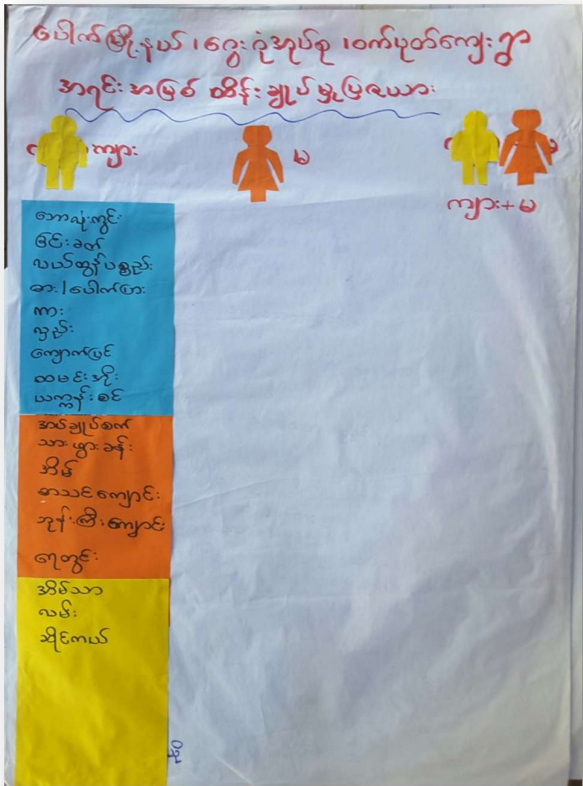 ပေါက်မြို့နယ်၊ ဂွေးဂုံအုပ်စု၊ ဝက်ပုတ်ကျေးရွာ
အရင်းအမြစ် ထိန်းချုပ်မှုပြဇယား
ကျား
မ
ကျား+မ
ဘောလုံးကွင်း
ခြင်းခတ်
လယ်ထွန်ပစ္စည်း
ဓား/ပေါက်ပြား
ကား
လှည်း
ကျောက်ပြင်
ထမင်းအိုး
ယက္ကန်းစင်
အပ်ချုပ်စက်
သားဖွားခန်း
အိမ်
စာသင်ကျောင်း
ဘုန်းကြီးကျောင်း
ရေတွင်း
အိမ်သာ
လမ်း
ဆိုင်ကယ်